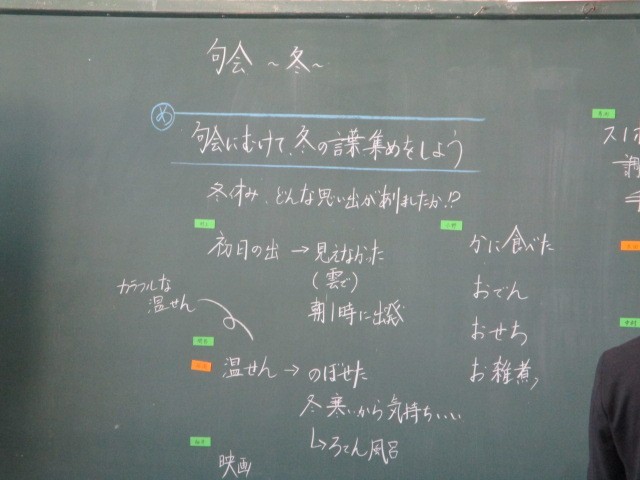 句会 ~冬~
め
句会にむけて、冬の言葉集めをしよう
冬休み、どんな思い出がありましたか!?
初日の出 → 見えなかった
(雲で)
朝1時に出発
カラフルな
温せん
温せん → のぼせた
冬寒いから気持ちいい
↳ろてん風呂
映画
かに食べた
おでん
おせち
お雑煮